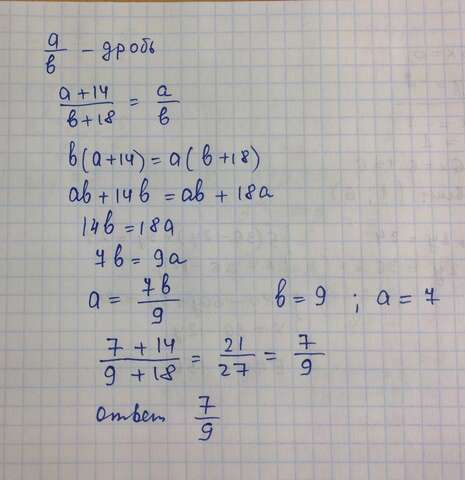 a/в - дробь
(a+14)/(в+18) = a/в
в(a+14)=a(в+18)
aв+14в=aв+18a
14в=18a
7в=9a
a=7в/9 в=9; a=7
(7+14)/(9+18)=21/27=7/9
ответ 7/9